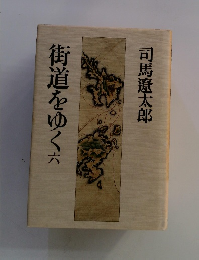 司馬遼太郎
街道をゆく 六